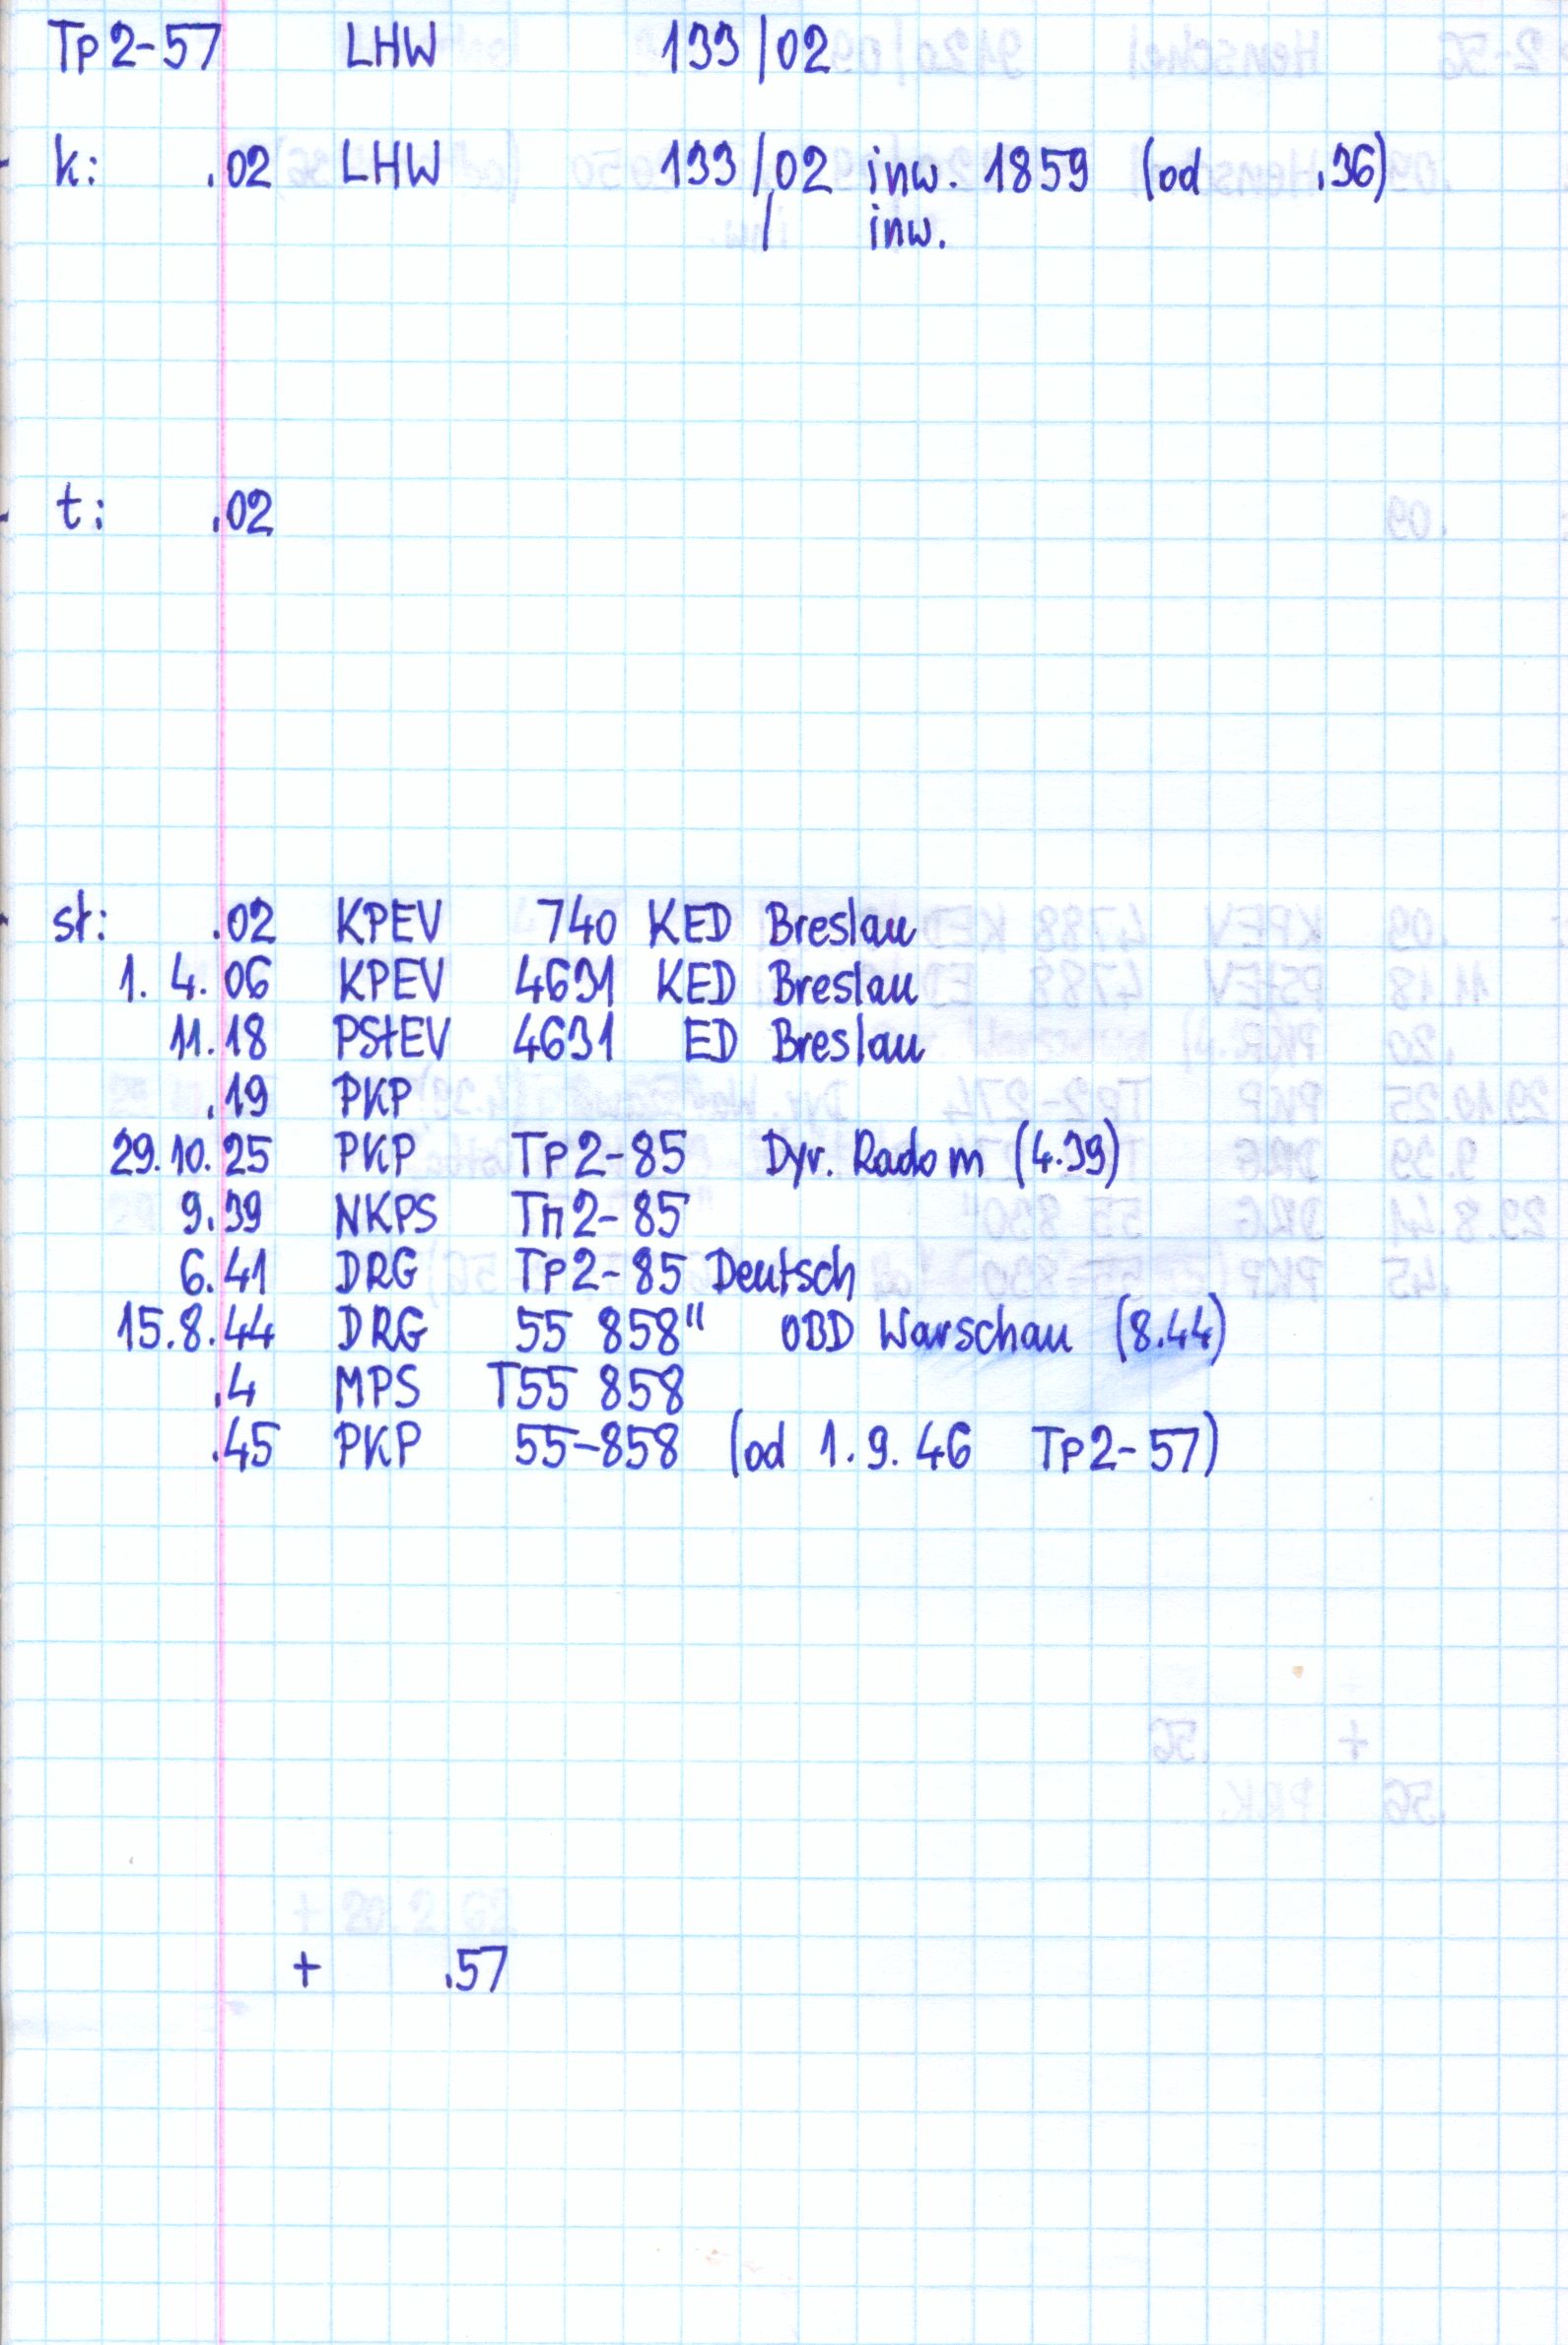 Tp2-57 LHW 133/02
k: .02 LHW 133/02 inw. 1859 (od .36)
/ inw.
t: .02
st: .02 KPEV 740 KED Breslau
1. 4. 06 KPEV 4631 KED Breslau
11.18 PStEV 4631 ED Breslau
.19 PKP
29.10.25 PKP Tp2-85 Dyr. Radom (4.39)
9.39 NKPS Тп2-85
6.41 DRG Tp2-85 Deutsch
15.8.44 DRG 55 858" OBD Warschau (8.44)
.4 MPS T55 858
.45 PKP 55-858 (od 1.9.46 Tp2-57)
+ .57